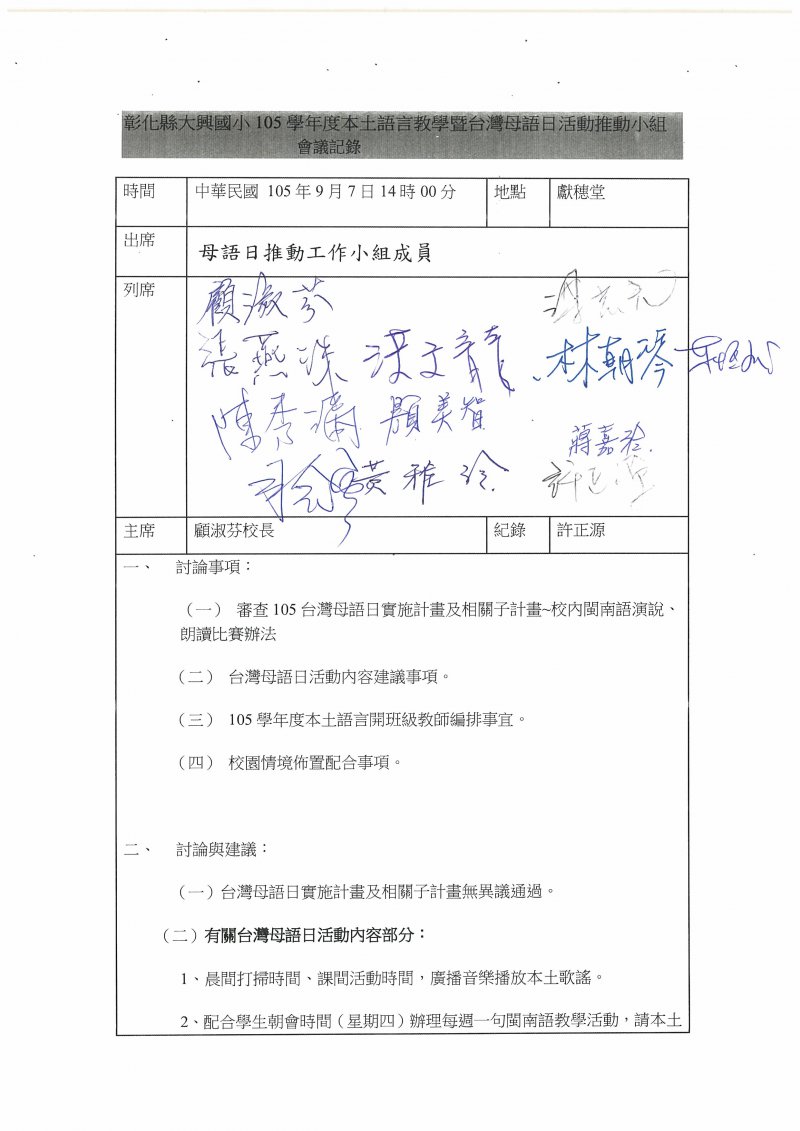 彰化縣大興國小 105 學年度本土語言教學暨台灣母語日活動推動小組
會議記錄
時間 中華民國 105 年 9 月 7 日 14 時 00 分 地點 獻穗堂
出席 母語日推動工作小組成員
列席
顧淑芬
張燕珠 洪文龍 林朝琴
陳秀 顏美智 蔣嘉玲
黃雅玲
主席 顧淑芬校長 紀錄 許正源
一、 討論事項：
（一） 審查 105 台灣母語日實施計畫及相關子計畫~校內閩南語演說、
朗讀比賽辦法
（二） 台灣母語日活動內容建議事項。
（三） 105 學年度本土語言開班級教師編排事宜。
（四） 校園情境佈置配合事項。
二、 討論與建議：
（一）台灣母語日實施計畫及相關子計畫無異議通過。
（二）有關台灣母語日活動內容部分：
1、晨間打掃時間、課間活動時間，廣播音樂播放本土歌謠。
2、配合學生朝會時間（星期四）辦理每週一句閩南語教學活動，請本土